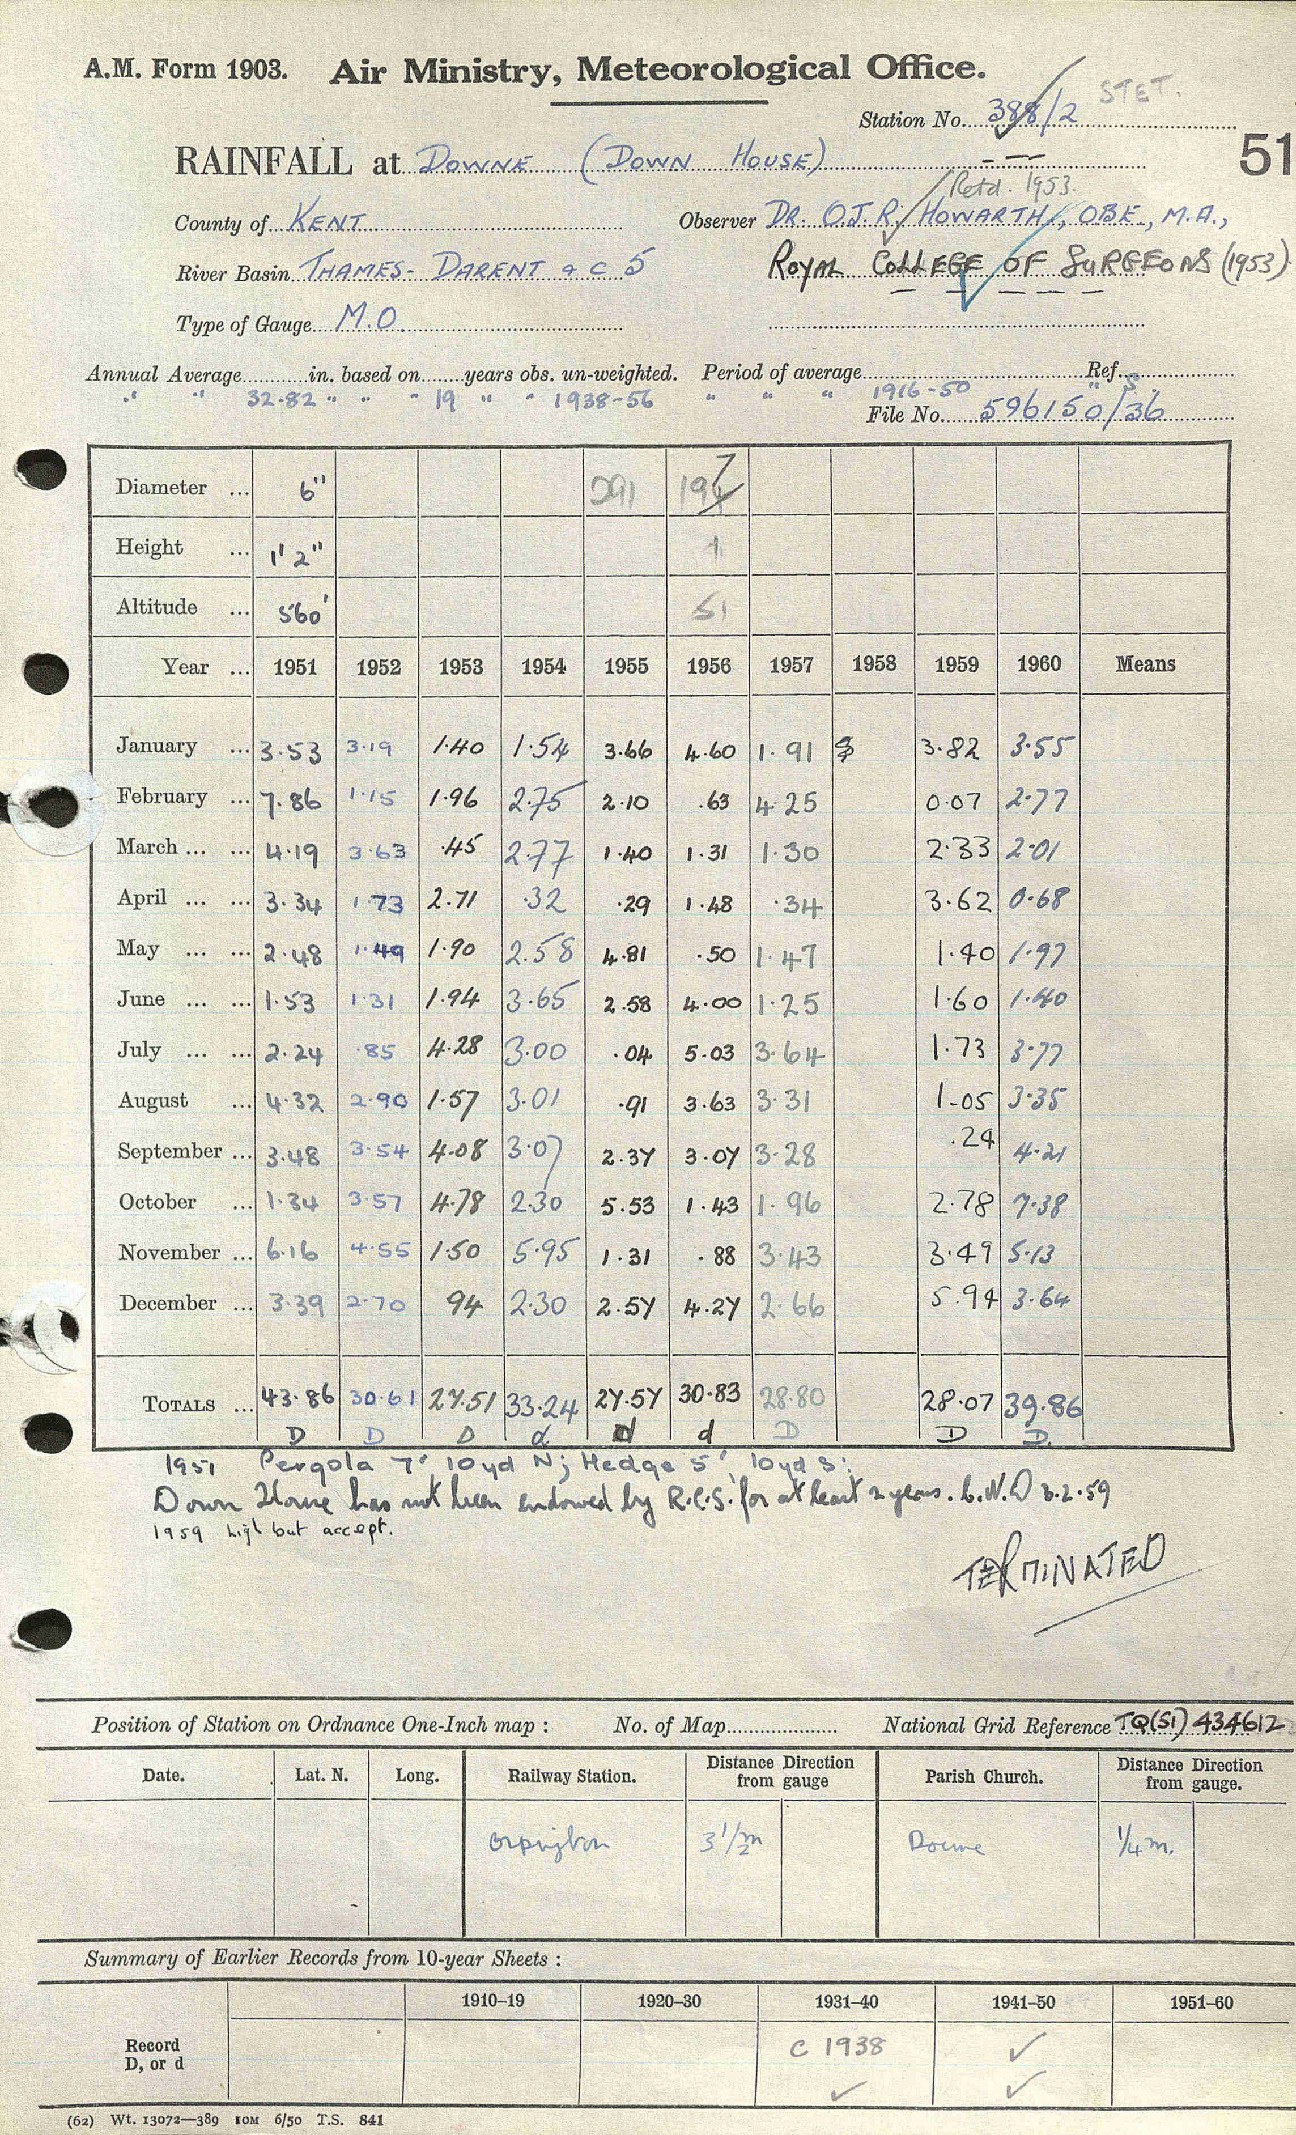 A.M. Form 1903. Air Ministry, Meteorological Office.
STET.
Station No. 388/2
51
RAINFALL at DOWNE (DOWN HOUSE)
Retd. 1953.
County of KENT Observer DR. O.J.R. HOWARTH, OBE., M.A.,
River Basin THAMES - DARENT & C 5 ROYAL COLLEGE OF SURGEONS (1953)
Type of Gauge M.O
Annual Average in. based on years obs. un-weighted. Period of average Ref.
" " 32.82 " " " 19 " " 1938-56 " " " 1916-50 " S.
File No. 596150/36
Diameter ... 6" 291 197
Height ... 1' 2" 1
Altitude ... 560' 51
Year ... 1951 1952 1953 1954 1955 1956 1957 1958 1959 1960 Means
January ... 3.53 3.19 1.40 1.54 3.66 4.60 1.91 3.82 3.55
February ... 7.86 1.15 1.96 2.75 2.10 .63 4.25 0.07 2.77
March ... ... 4.19 3.63 .45 2.77 1.40 1.31 1.30 2.33 2.01
April ... ... 3.34 1.73 2.71 .32 .29 1.48 .34 3.62 0.68
May ... ... 2.48 1.49 1.90 2.58 4.81 .50 1.47 1.40 1.97
June ... ... 1.53 1.31 1.94 3.65 2.58 4.00 1.25 1.60 1.40
July ... ... 2.24 .85 4.28 3.00 .04 5.03 3.64 1.73 3.77
August ... 4.32 2.90 1.57 3.01 .91 3.63 3.31 1.05 3.35
September ... 3.48 3.54 4.08 3.07 2.37 3.07 3.28 .24 4.21
October ... 1.34 3.57 4.78 2.30 5.53 1.43 1.96 2.78 7.38
November ... 6.16 4.55 1.50 5.95 1.31 .88 3.43 3.49 5.13
December ... 3.39 2.70 94 2.30 2.57 4.27 2.66 5.94 3.64
TOTALS ... 43.86 30.61 27.51 33.24 27.57 30.83 28.80 28.07 39.86
D D D d d d D D D.
1951 Pergola 7' 10yd N; Hedge 5' 10yd S.
Down House has not been endowed by R.C.S. for at least 2 years. 3.2.59
1959 high but accept.
TERMINATED
Position of Station on Ordnance One-Inch map : No. of Map National Grid Reference TQ(51) 434612
Date. Lat. N. Long. Railway Station. Distance Direction from gauge Parish Church. Distance Direction from gauge.
Orpington 3 1/2 m Downe 1/4 m.
Summary of Earlier Records from 10-year Sheets :
1910–19 1920–30 1931–40 1941–50 1951–60
Record C 1938 ✓
D, or d ✓ ✓
(62) Wt. 13072—389 10M 6/50 T.S. 841